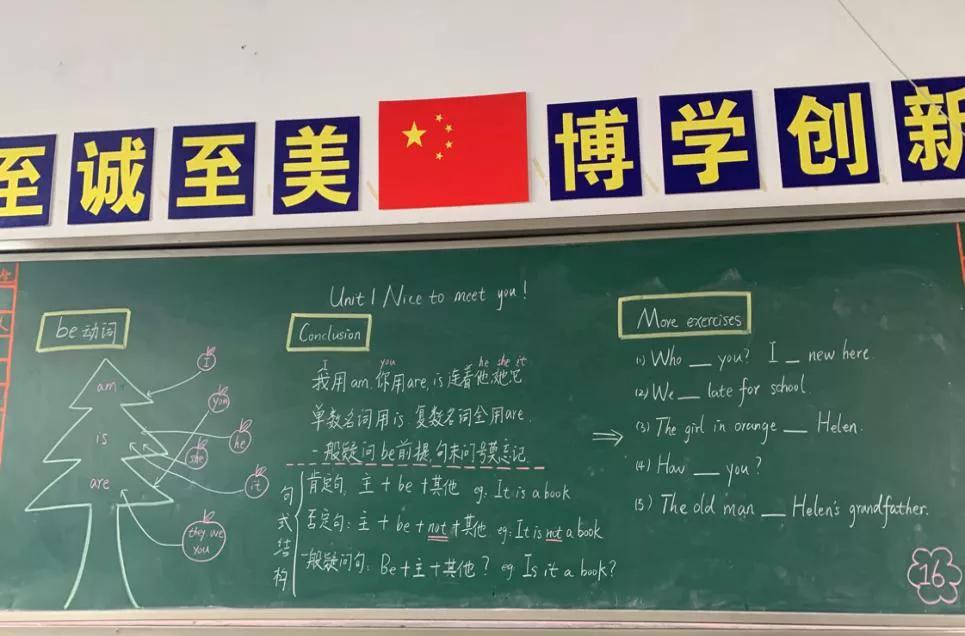 至诚至美 博学创新
Unit 1 Nice to meet you!
be 动词
am
is
are
I
you
he
she
it
they we
you
Conclusion
I you he she it
我用am, 你用are, is连着他她它
单数名词用is, 复数名词全用are.
一般疑问be前提, 句末问号莫忘记
句式结构
肯定句: 主 + be + 其他 eg: It is a book
否定句: 主 + be + not + 其他 eg: It is not a book
一般疑问句: Be + 主 + 其他? eg: Is it a book?
More exercises
(1) Who __ you? I __ new here.
(2) We __ late for school.
(3) The girl in orange __ Helen.
(4) How __ you?
(5) The old man __ Helen's grandfather.
16